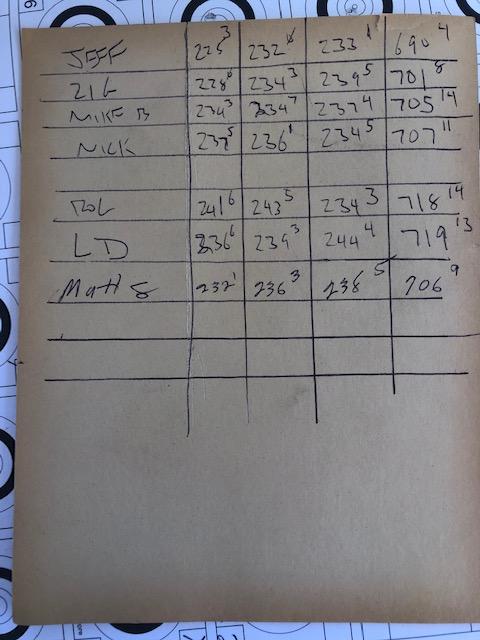 JEFF 225³ 232⁰ 233¹ 690⁴
ZIG 228⁰ 234³ 239⁵ 701⁸
MIKE B 234³ 234⁷ 237⁴ 705¹⁴
NICK 237⁵ 236¹ 234⁵ 707¹¹
241⁶ 243⁵ 234³ 718¹⁴
LD 236⁶ 239³ 244⁴ 719¹³
Matt S 232¹ 236³ 238⁵ 706⁹